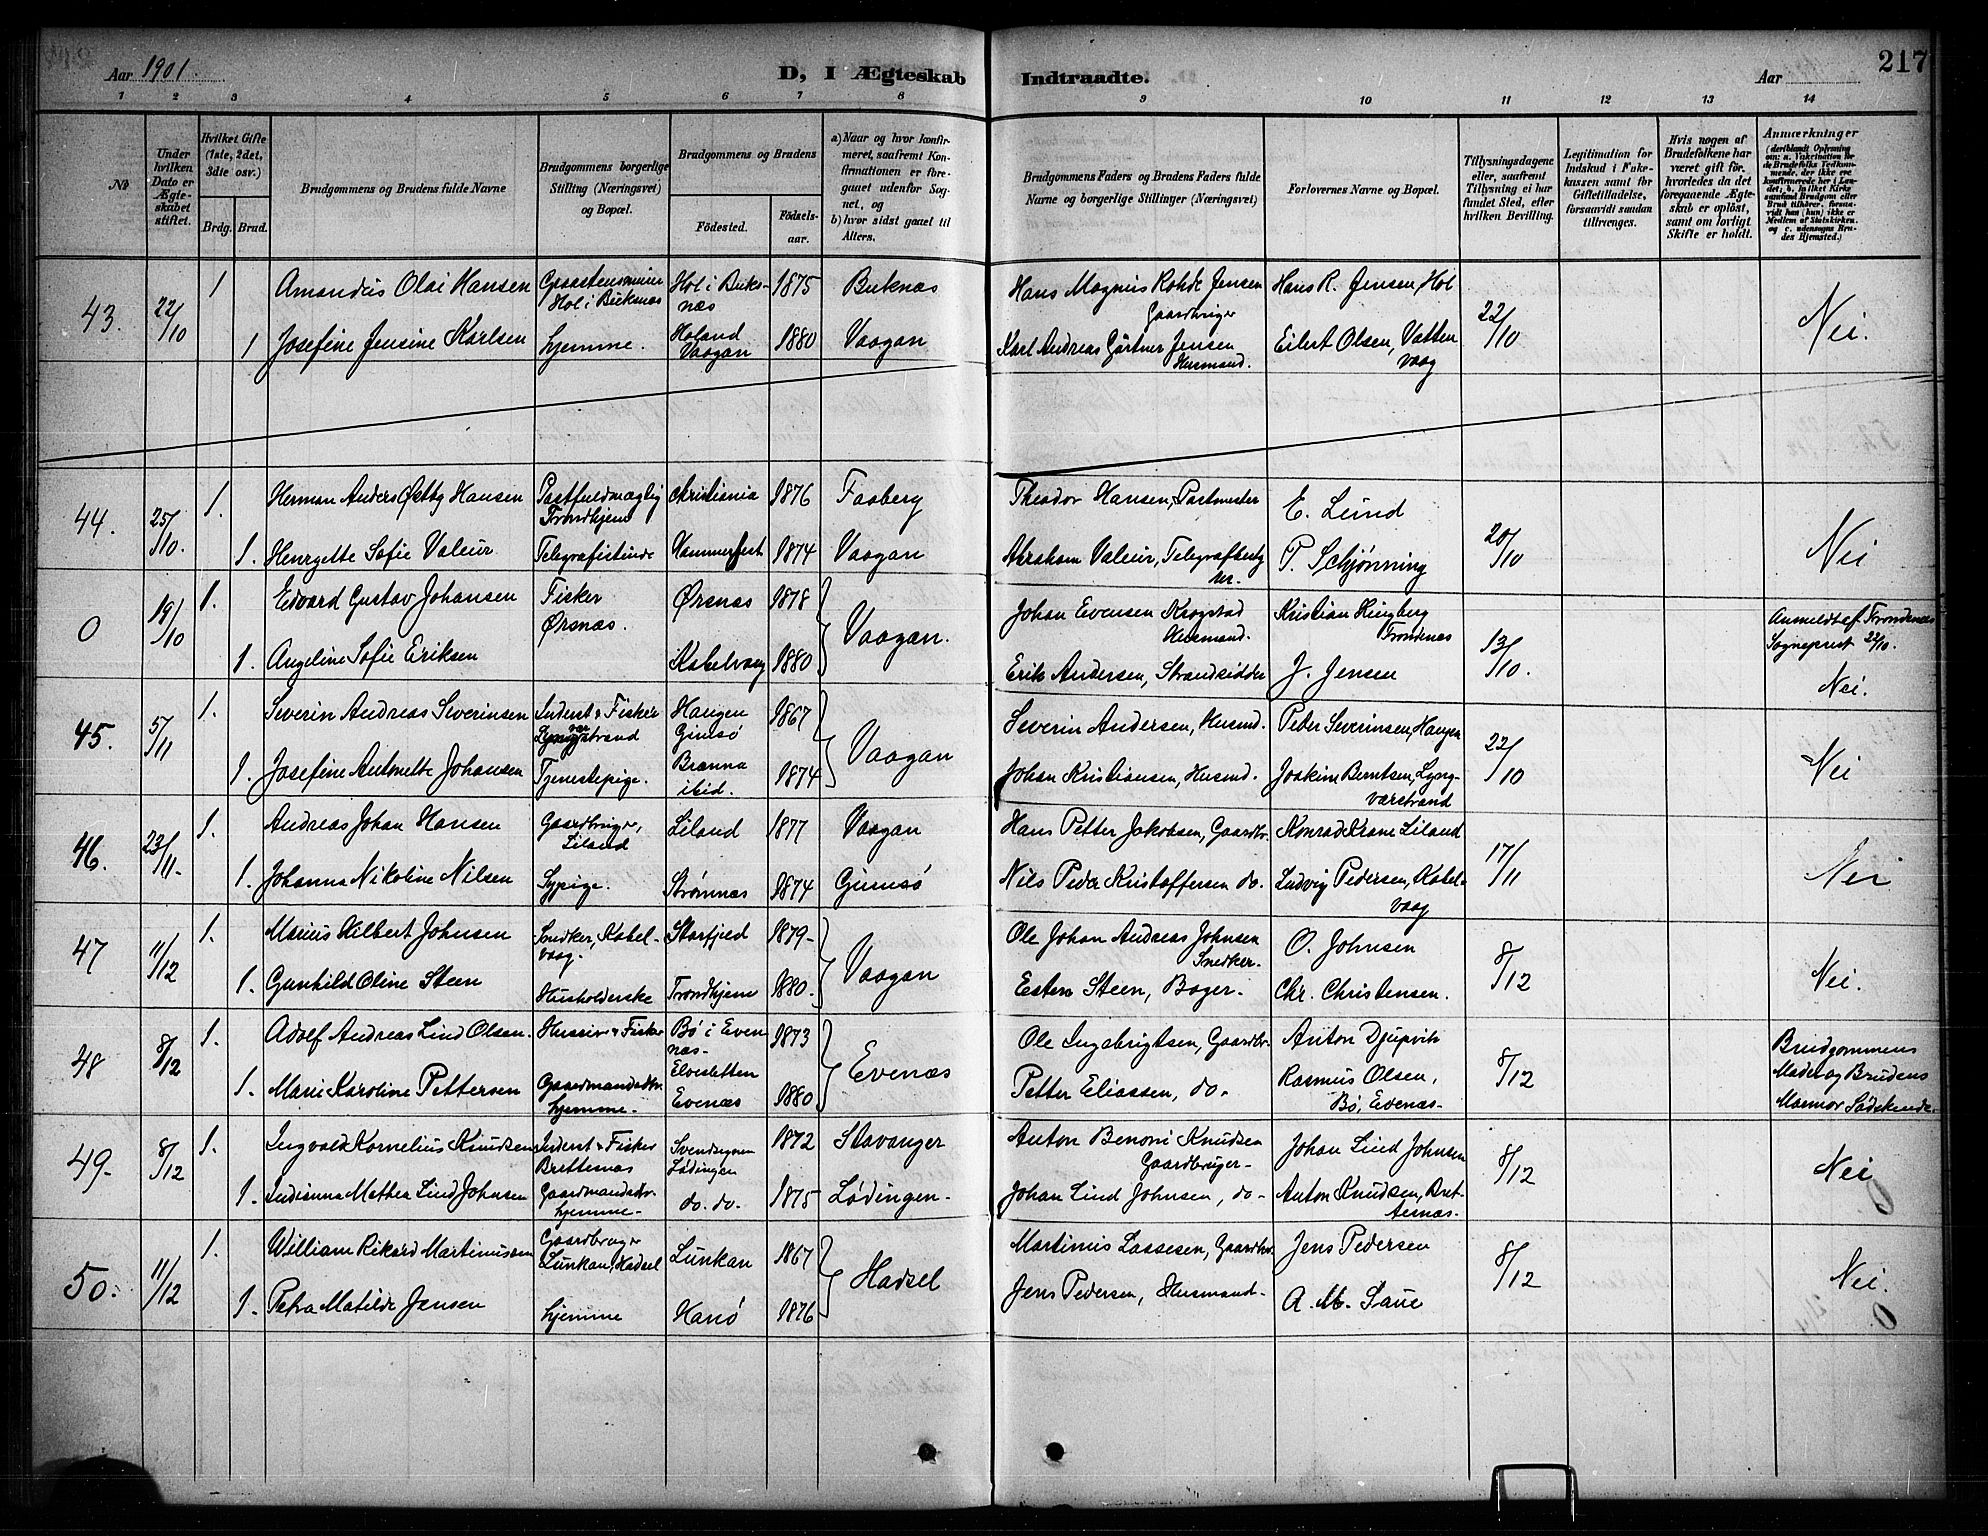 Aar 1901.
D, I Ægteskab Indtraadte.
Aar
217
1 2 3 4 5 6 7 8 9 10 11 12 13 14
No
Under hvilken Dato er Ægteskabet stiftet.
Hvilket Gifte (1ste, 2det, 3die osv.)
Brdg. Brud.
Brudgommens og Brudens fulde Navne
Brudgommens borgerlige Stilling (Næringsvei) og Bopæl.
Brudgommens og Brudens
Fødested.
Fødsels-aar.
a) Naar og hvor konfirmeret, saafremt Konfirmationen er foregaaet udenfor Sognet, og
b) hvor sidst gaaet til Alters.
Brudgommens Faders og Brudens Faders fulde Navne og borgerlige Stillinger (Næringsvei)
Forlovernes Navne og Bopæl.
Tillysningsdagene eller, saafremt Tillysning ei har fundet Sted, efter hvilken Bevilling.
Legitimation for Indskud i Enkekassen samt for Giftetilladelse, forsaavidt saadan tiltrænges.
Hvis nogen af Brudefolkene har været gift før, hvorledes da det foregaaende Ægteskab er opløst, samt om lovligt Skifte er holdt.
Anmærkninger
(deriblandt Oplysning om: a. Vaksination for de Brudefolks Vedkommende, der ikke ere konfirmerede her i Landet; b. hvilket Kirkesamfund Brudgom eller Brud tilhører, forsaavidt han (hun) ikke er Medlem af Statskirken, og c. udensogns Brudes Hjemsted.)
43. 22/10 1 Amandus Olai Hansen Hol i Buknæs Hol i Buksnæs 1875 Buknæs Hans Magnus Rohde Jensen Gaardbruger Hans R. Jensen, Hol 22/10 Nei.
1 Josefine Jensine Karlsen hjemme. Holand Vaagan 1880 Vaagan Karl Andreas Gärtner Jensen Husmand. Eilert Olsen, Vattenvaag
44. 25/10. 1. Herman Anders Østby Hansen Postfuldmægtig Trondhjem Christiania 1876 Faaberg Theodor Hansen, Postmester E. Lund 20/10 Nei
1. Henryette Sofie Valeur Telegrafistinde Hammerfest 1874 Vaagan Abraham Valeur, Telegrafbestyr. P. Schjønning
0 19/10 1. Edvard Gustav Johansen Fisker Ørsnæs. Ørsnæs 1878 Vaagan. Johan Evensen Krogstad Husmand. Kristian Kingberg Trondenæs 13/10. Anmeldt af Trondenæs Sogneprest 22/10.
1. Angeline Sofie Eriksen Kabelvaag 1880 Erik Andersen, Strandsidder J. Jensen Nei.
45. 5/11 1. Severin Andreas Severinsen Inderst & Fisker Lyngværstrand Haugen Gimsø 1867 Vaagan Severin Andersen, Husmd. Peter Severinsen, Haugen 22/10 Nei
1. Josefine Antonette Johansen Tjenestepige. Brenna ibid. 1874 Johan Kristiansen, Husmd. Joakim Berntsen, Lyngværstrand
46. 23/11. 1. Andreas Johan Hansen Gaardbruger, Liland Liland 1877 Vaagan Hans Petter Jakobsen, Gaardbr. Konrad Krane Liland 17/11 Nei
1. Johanna Nikoline Nilsen Sypige. Strømnæs 1874 Gimsø Nils Peder Kristoffersen do. Ludvig Pedersen, Kabelvaag
47 11/12 1. Marius Hilbert Johnsen Snedker, Kabelvaag. Storfjeld 1879- Vaagan Ole Johan Andreas Johnsen Snedker. O. Johnsen 8/12 Nei.
1. Gunhild Oline Steen Husholderske Trondhjem 1880. Esten Steen, Bager. Chr. Christensen.
48 8/12 1. Adolf Andreas Lind Olsen. Husmer & Fisker Bø i Evenæs. 1873 Evenæs Ole Ingebrigtsen, Gaardbr. Anton Djupvik 8/12 Brudgommens Moder og Brudens Mormor Sødskende.
1. Marie Karoline Pettersen Gaardmandsdtr. hjemme. Elvesletten Evenæs 1880 Petter Eliassen, do. Rasmus Olsen, Bø, Evenæs.
49. 8/12 1. Ingvald Kornelius Knudsen Inderst & Fisker Brettesnæs Lødingen 1872 Stavanger Anton Benoni Knudsen Gaardbruger. Johan Lind Johnsen 8/12 Nei
1. Indianna Mathea Lind Johnsen Gaardmandsdtr. hjemme. do. do. 1875 Lødingen. Johan Lind Johnsen, do. Anton Knudsen, Brettesnæs.
50. 11/12 1. William Rikard Martinussen Gaardbruger Lunkan, Hadsel Lunkan 1867 Hadsel Martinus Lassesen, Gaardbr. Jens Pedersen 8/12 Nei.
1. Petra Matilde Jensen hjemme Hanø 1876 Jens Pedersen, Husmand. A. M. Saue